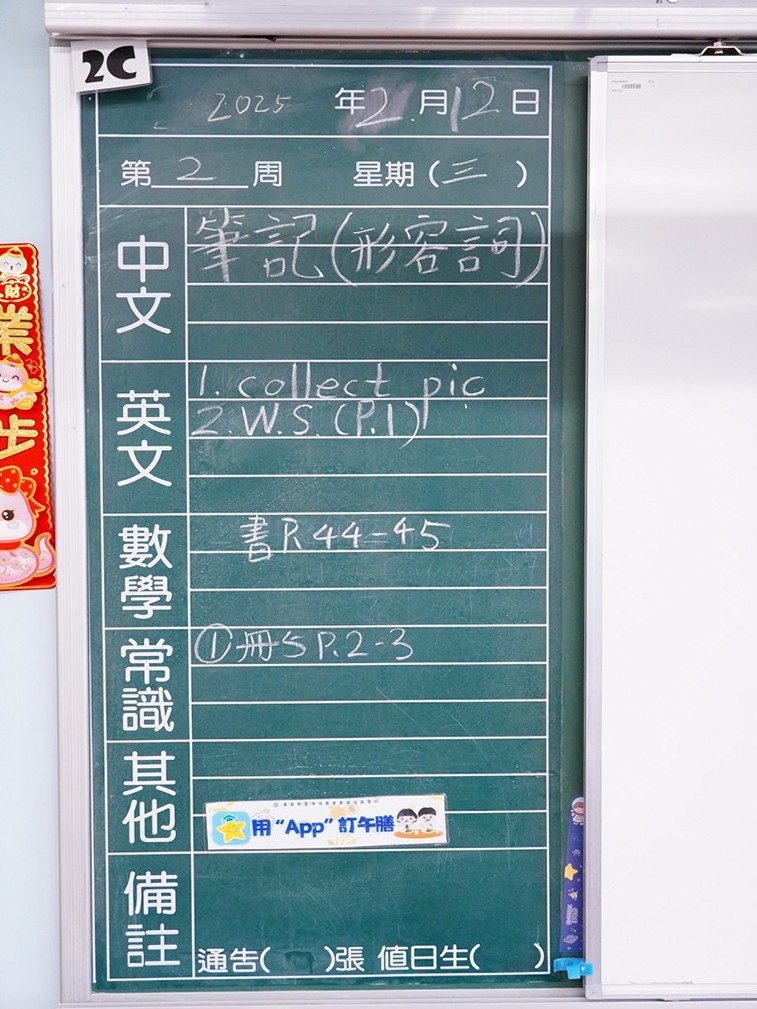 2C
2025 年2月12日
第2周 星期(三)
中文
筆記(形容詞)
英文
1. collect pic
2. W.S. (P.1)
數學
書P.44-45
常識
①冊5 P.2-3
其他
用“App”訂午膳
備註
通告( )張 值日生( )
財
業
步